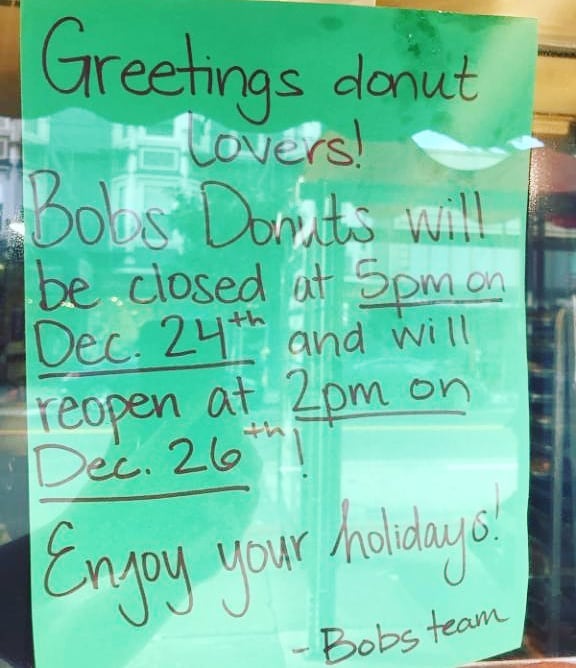 Greetings donut
lovers!
Bobs Donuts will
be closed at 5pm on
Dec. 24th and will
reopen at 2pm on
Dec. 26th!
Enjoy your holidays!
- Bobs team